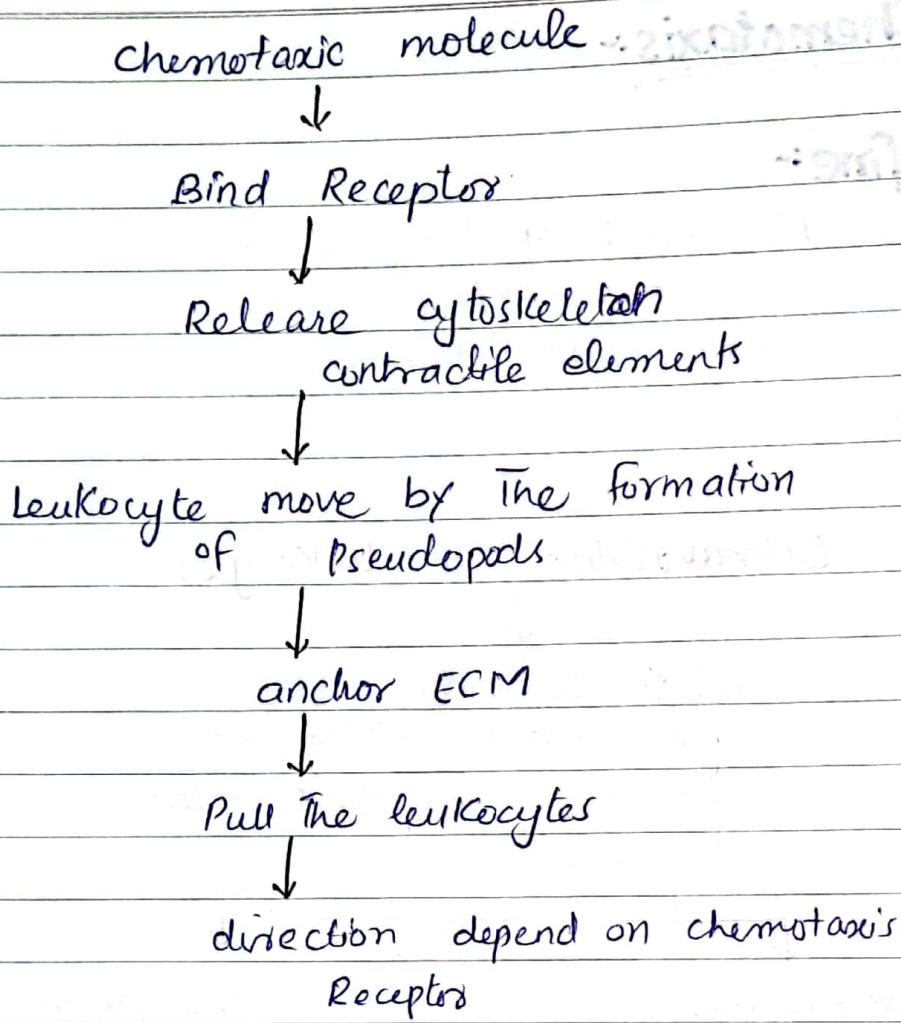 Chemotaxic molecule
↓
Bind Receptor
↓
Release cytoskeleton
contractile elements
↓
Leukocyte move by The formation
of Pseudopods
↓
anchor ECM
↓
Pull The leukocytes
↓
direction depend on chemotaxis
Receptor